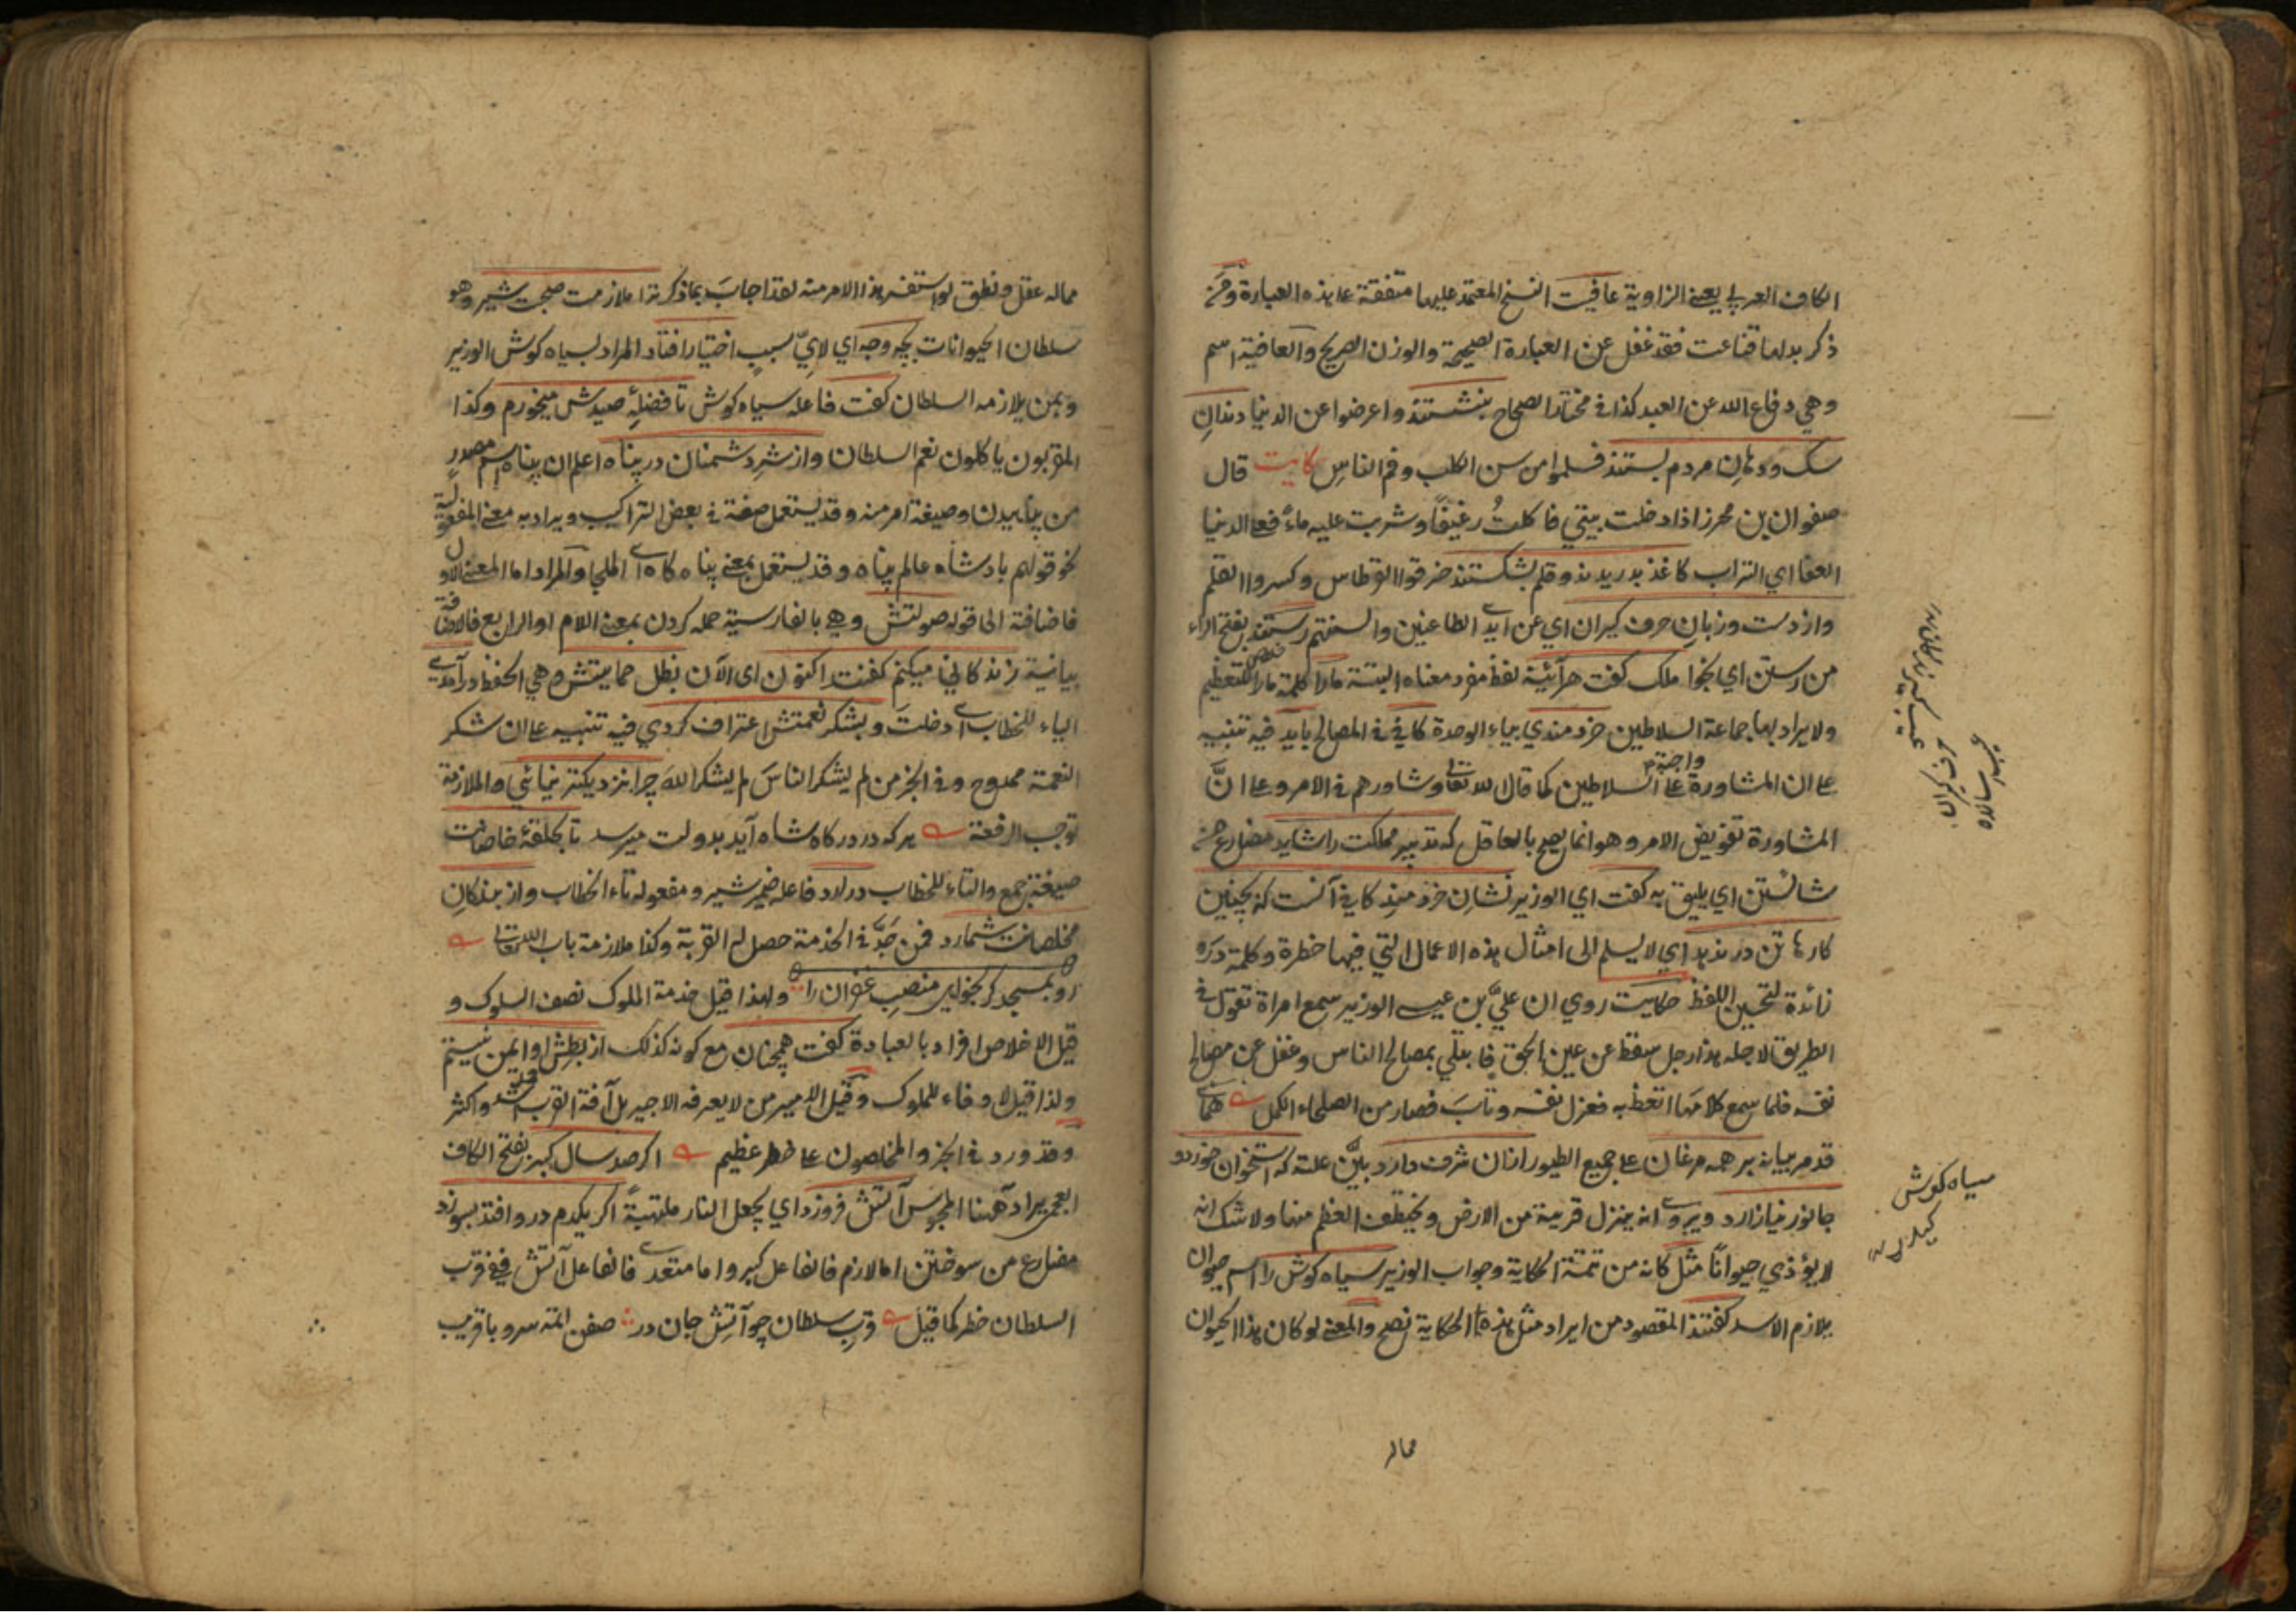 الكاف العربي يعني الزاوية عافيت النسخ المعتمد عليها متفقة على هذه العبارة ومن
ذكر بدلها قناعت فقد غفل عن العبارة الصحيحة والوزن الصريح والعافية اسم
وهي دفاع الله عن العبد كذا في مختار الصحاح بنشستند واعرضوا عن الدنيا دندان
سك ودهان مردم بستند فسلموا من سن الكلب وفم الناس قال
صفوان بن محرز اذا دخلت بيتي فاكلت رغيفا وشربت عليه ماء فعلى الدنيا
العفا اي التراب كاغذ بدريدند وقلم بشكستند خرقوا القرطاس وكسروا القلم
واز دست وزبان حرف كيران اي عن ايدي الطاعنين والسنتهم رستند بفتح الراء
من رستن اي نجوا ملك كفت هرآئينه لفظ مفرد معناه البتة مارا كلمة مارا للتعظيم
ولا يراد بها جماعة السلاطين خردمندي بياء الوحدة كافي في المصالح بايد فيه تنبيه
على ان المشاورة واجبة على السلاطين كما قال الله تعالى وشاورهم في الامر وعلى انّ
المشاورة تفويض الامر وهو انما يصح بالعاقل كه تدبير مملكت را شايد مضارع من
شائستن اي يليق به كفت اي الوزير نشان خردمند كافي آنست كه بچنين
كارها تن درندهد اي لا يسلم الى امثال هذه الاعمال التي فيها خطرة وكلمة در
زائدة لتحسين اللفظ حكايت روي ان عليّ بن عيسى الوزير سمع امراة تقول في
الطريق لاجله هذا رجل سقط عن عين الحق فابتلي بمصالح الناس وغفل عن مصالح
نفسه فلما سمع كلامها اتعظ به فعزل نفسه وتاب فصار من الصلحاء الكمل هماي
قد مر بيانه بر همه مرغان على جميع الطيور ازان شرف دارد بيّن علته كه استخوان خورد و
جانور نيازارد ويروى انه ينزل قريبة من الارض ويختطف العظم منها ولا شك انه
لا يؤذي حيوانا مثل كانه من تتمة الحكاية وجواب الوزير سياه كوش را اسم حيوان
يلازم الاسد كفتند المقصود من ايراد مثل هذه الحكاية نصح والمعنى لو كان هذا الحيوان
مماله
سياه كوش
حرف كيران
مماله عقل ونطق لو استفسر هذا الامر منه لقد اجاب بما ذكر ترا ملازمت صحبت شير وهو
سلطان الحيوانات بچه وجه اي لايّ سبب اختيار افتاد المراد بسياه كوش الوزير
وبمن يلازمه السلطان كفت فاعله سياه كوش تا فضلۀ صيدش ميخورم وكذا
المقربون ياكلون نعم السلطان واز شر دشمنان در پناه اعلم ان پناه اسم مصدر
من پناهيدن وصيغة امر منه وقد يستعمل صفة في بعض التراكيب ويراد به معنى المفعولية
نحو قولهم بادشاه عالم پناه وقد يستعمل بمعنى پناه كاه اي الملجا والمراد اما المعنى الاول
فاضافته الى قوله صولتش وهي بالفارسية حمله كردن بمعنى اللام او الرابع فالاضافة
بيانية زندكاني ميكنم كفتند اكنون اى الآن بظل حمايتش وهي الحفظ درآمدي
الياء للخطاب اي دخلت وبشكر نعمتش اعتراف كردي فيه تنبيه على ان شكر
النعمة ممدوح وفي الخبر من لم يشكر الناس لم يشكر الله چرا نزديكتر نيائي والملازمة
توجب الرفعة هر كه در دركاه شاه آيد بدولت ميرسد تا بحلقۀ خاصانت
صيغة جمع والتاء للخطاب درآرد فاعله ضمير شير ومفعوله تاء الخطاب واز بندكان
مخلصانت شمارد فمن جدّ في الخدمة حصل له القربة وكذا ملازمة باب الله تعالى
ولهذا قيل خدمة الملوك نصف السلوك و
قيل الاخلاص افراد بالعبادة كفت همچنان مع كونه كذلك از بطش او ايمن نيستم
ولذا قيل لا وفاء للملوك وقيل الامير من لا يعرفه الاجير بل آفة القرب اشد واكثر
وقد ورد في الخبر والمخلصون على خطر عظيم اكر صد سال كبر بفتح الكاف
العجمي يراد ههنا المجوس آتش فروزد اي يجعل النار ملتهبة اكر يكدم درو افتد بسوزد
مضارع من سوختن اما لازم فالفاعل كبر واما متعدي فالفاعل آتش ففي قرب
السلطان خطر كما قيل قرب سلطان چو آتش جان در